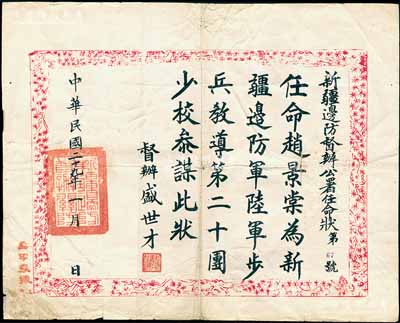 新疆邊防督辦公署任命狀第 號
任命趙景棠為新
疆邊防軍陸軍步
兵教導第二十團
少校叅謀此狀
督辦盛世才
中華民國二十九年一月 日